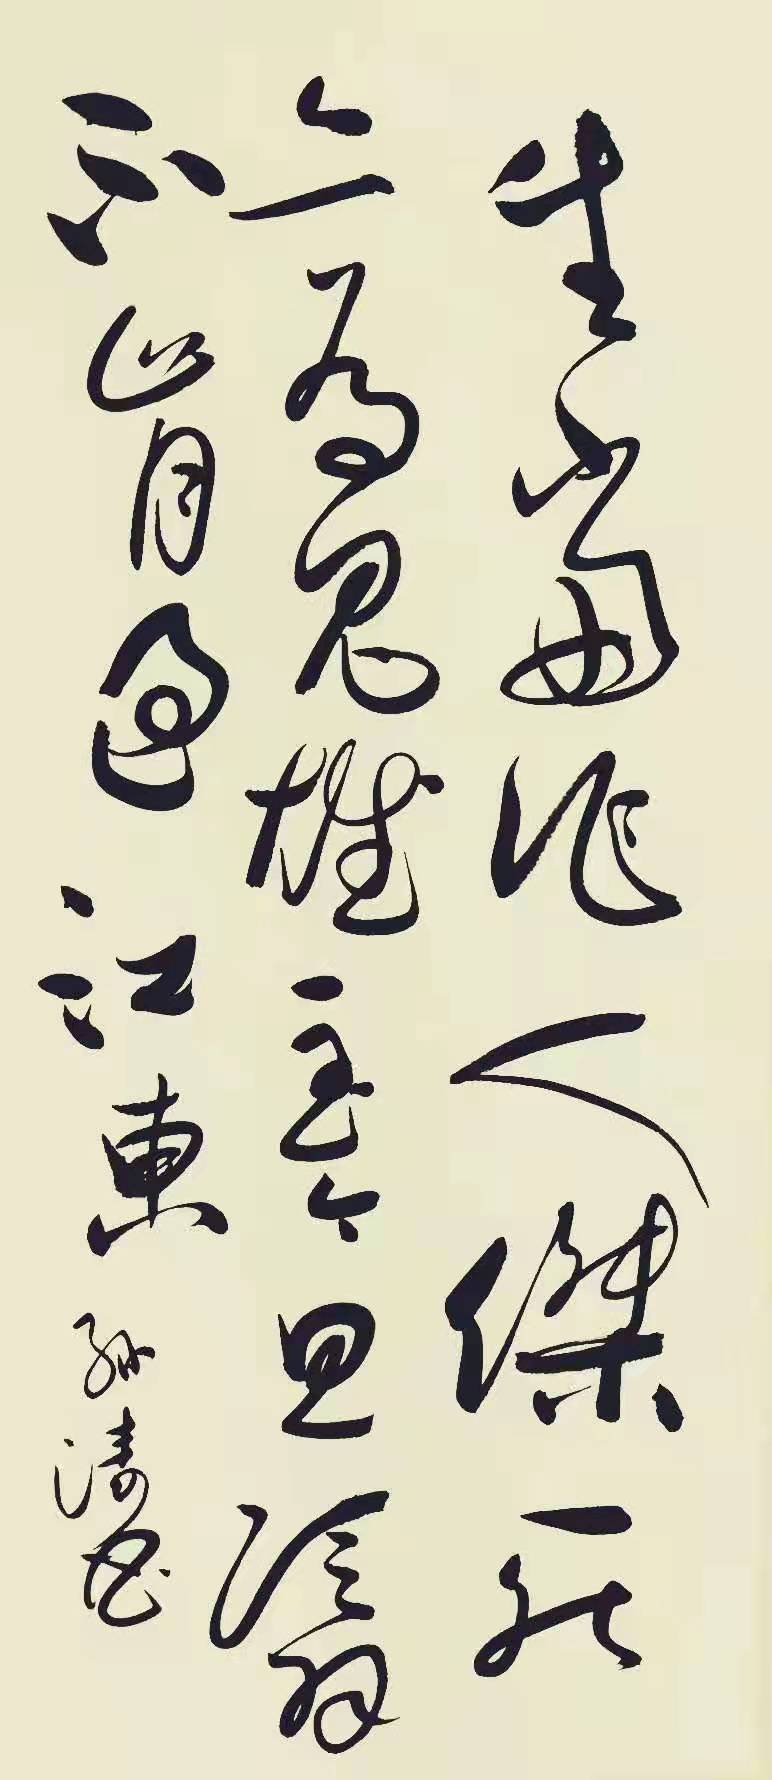 生當作人傑死
亦為鬼雄至今思項羽
不肯過江東
孫濤書